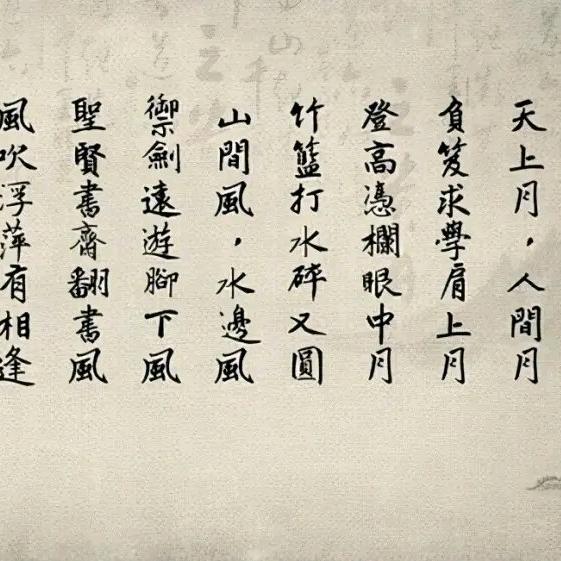 天上月，人間月
負笈求學肩上月
登高憑欄眼中月
竹籃打水碎又圓
山間風，水邊風
御劍遠遊腳下風
聖賢書齋翻書風
風吹浮萍有相逢